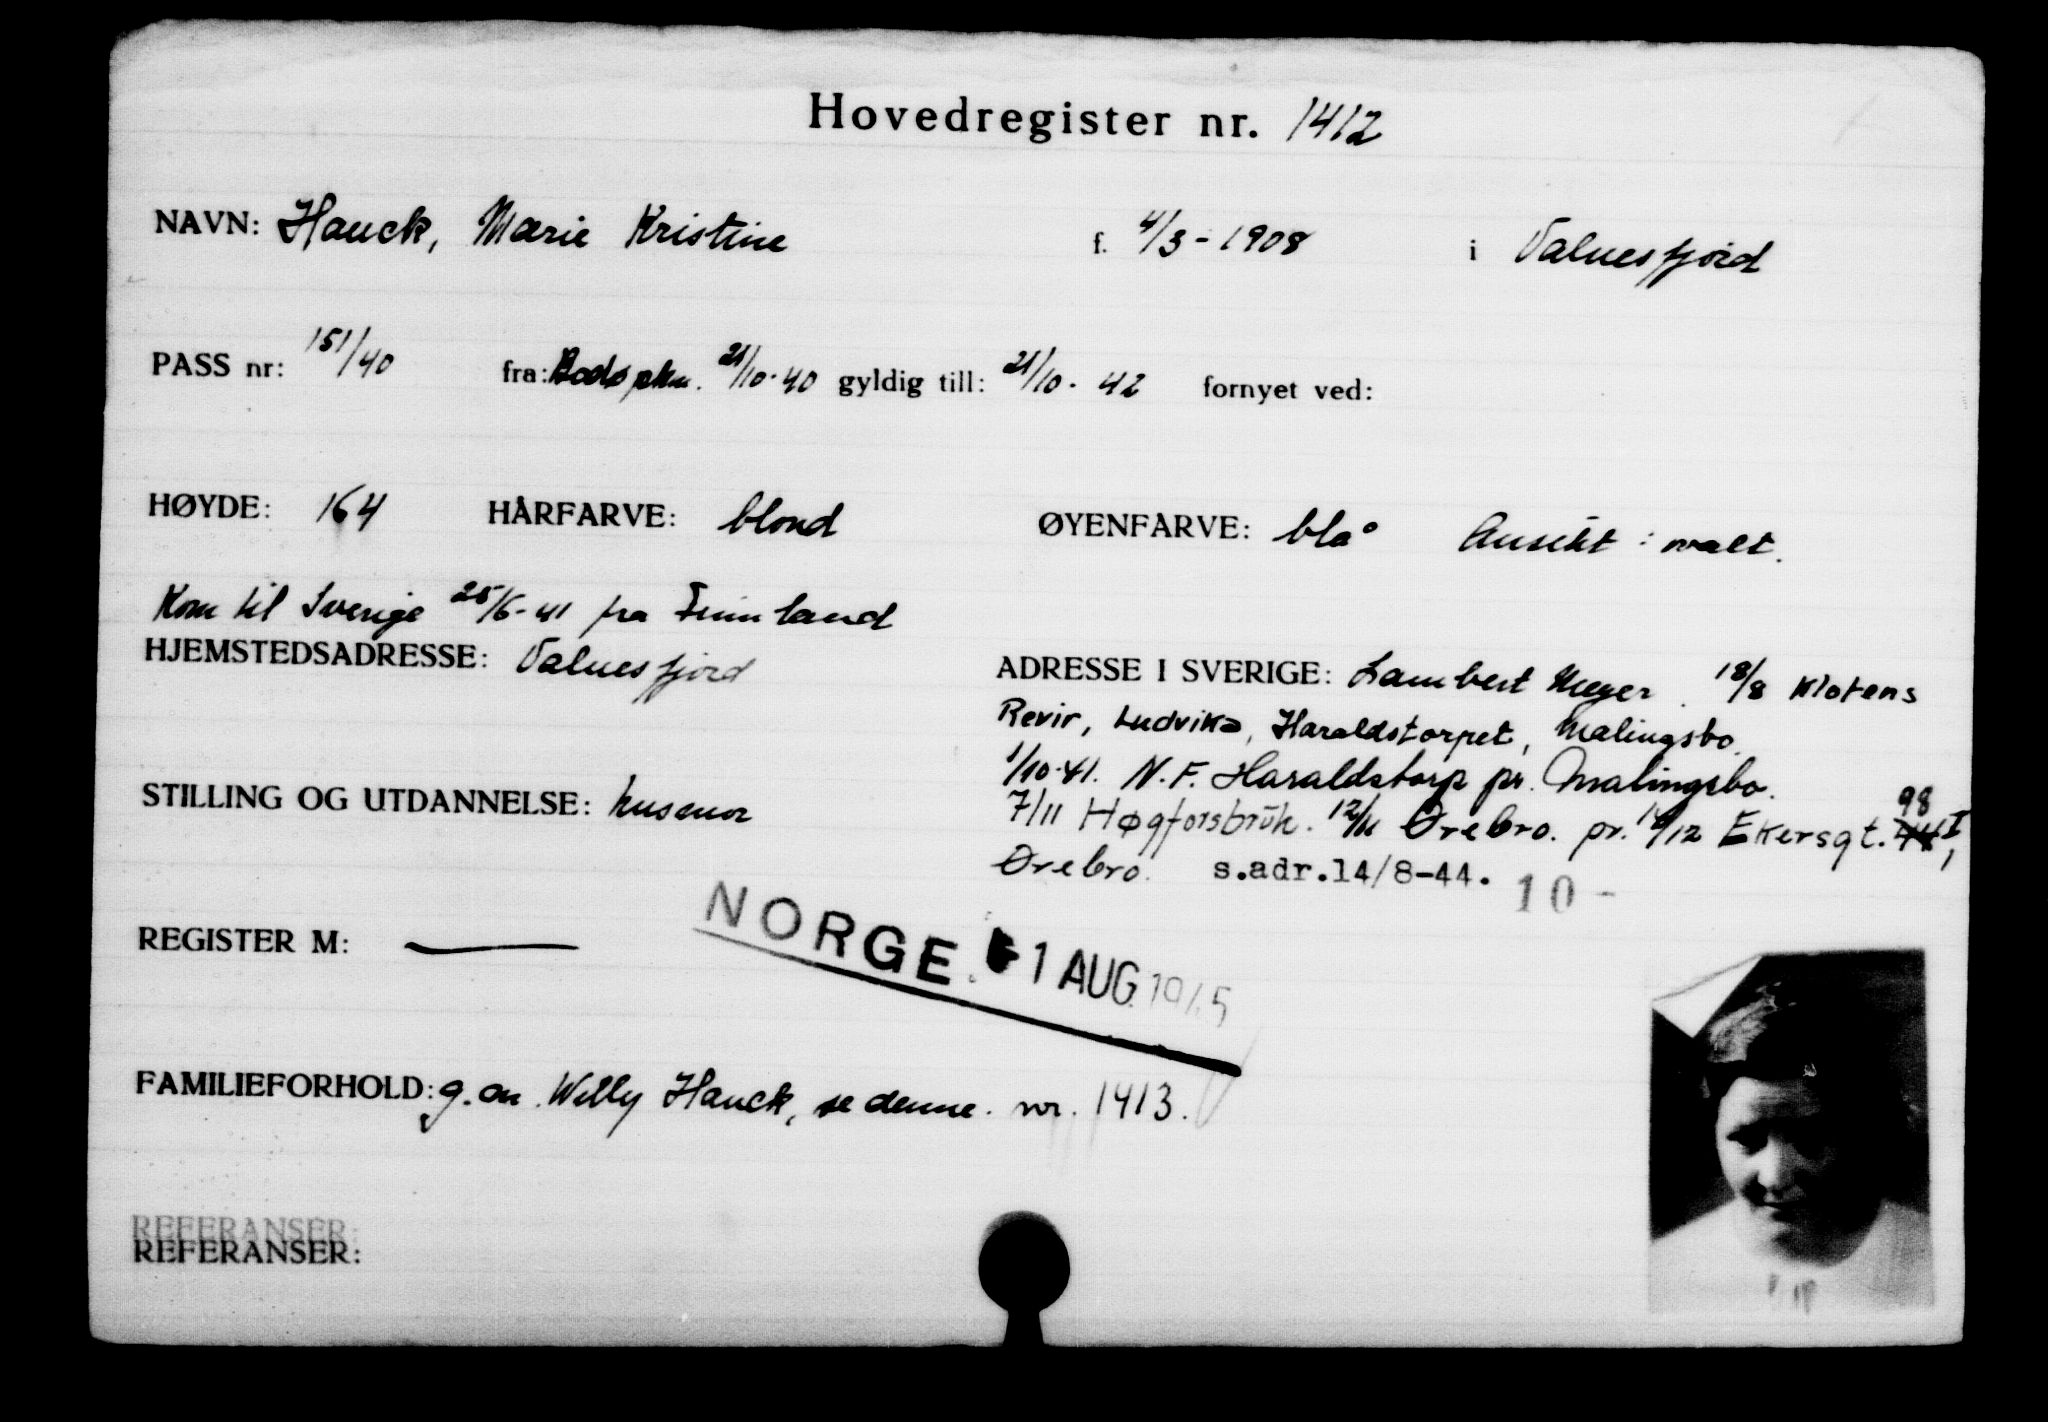 Hovedregister nr. 1412
NAVN: Hauck, Marie Kristine f. 4/3-1908 i Valnesfjord
PASS nr: 151/40 fra: Bodø pkm. 21/10-40 gyldig till: 21/10-42 fornyet ved:
HØYDE: 164 HÅRFARVE: blond ØYENFARVE: blå Ansikt: ovalt.
Kom til Sverige 25/6-41 fra Finnland
HJEMSTEDSADRESSE: Valnesfjord
ADRESSE I SVERIGE: Lambert Meyer. 18/8 Klotens
Revir, Ludvika, Haraldstorpet, Malingsbo.
1/10-41. N.F. Haraldstorp pr. Malingsbo.
7/11 Høgforsbruk. 12/11 Ørebro. pr. 14/12 Ekersgt. 98 I,
Ørebro. s.adr.14/8-44. 10-
STILLING OG UTDANNELSE: husmor
REGISTER M: —
NORGE. 1 AUG 1945
FAMILIEFORHOLD: g.m. Willy Hauck, se denne. nr. 1413.
REFERANSER:
REFERANSER: